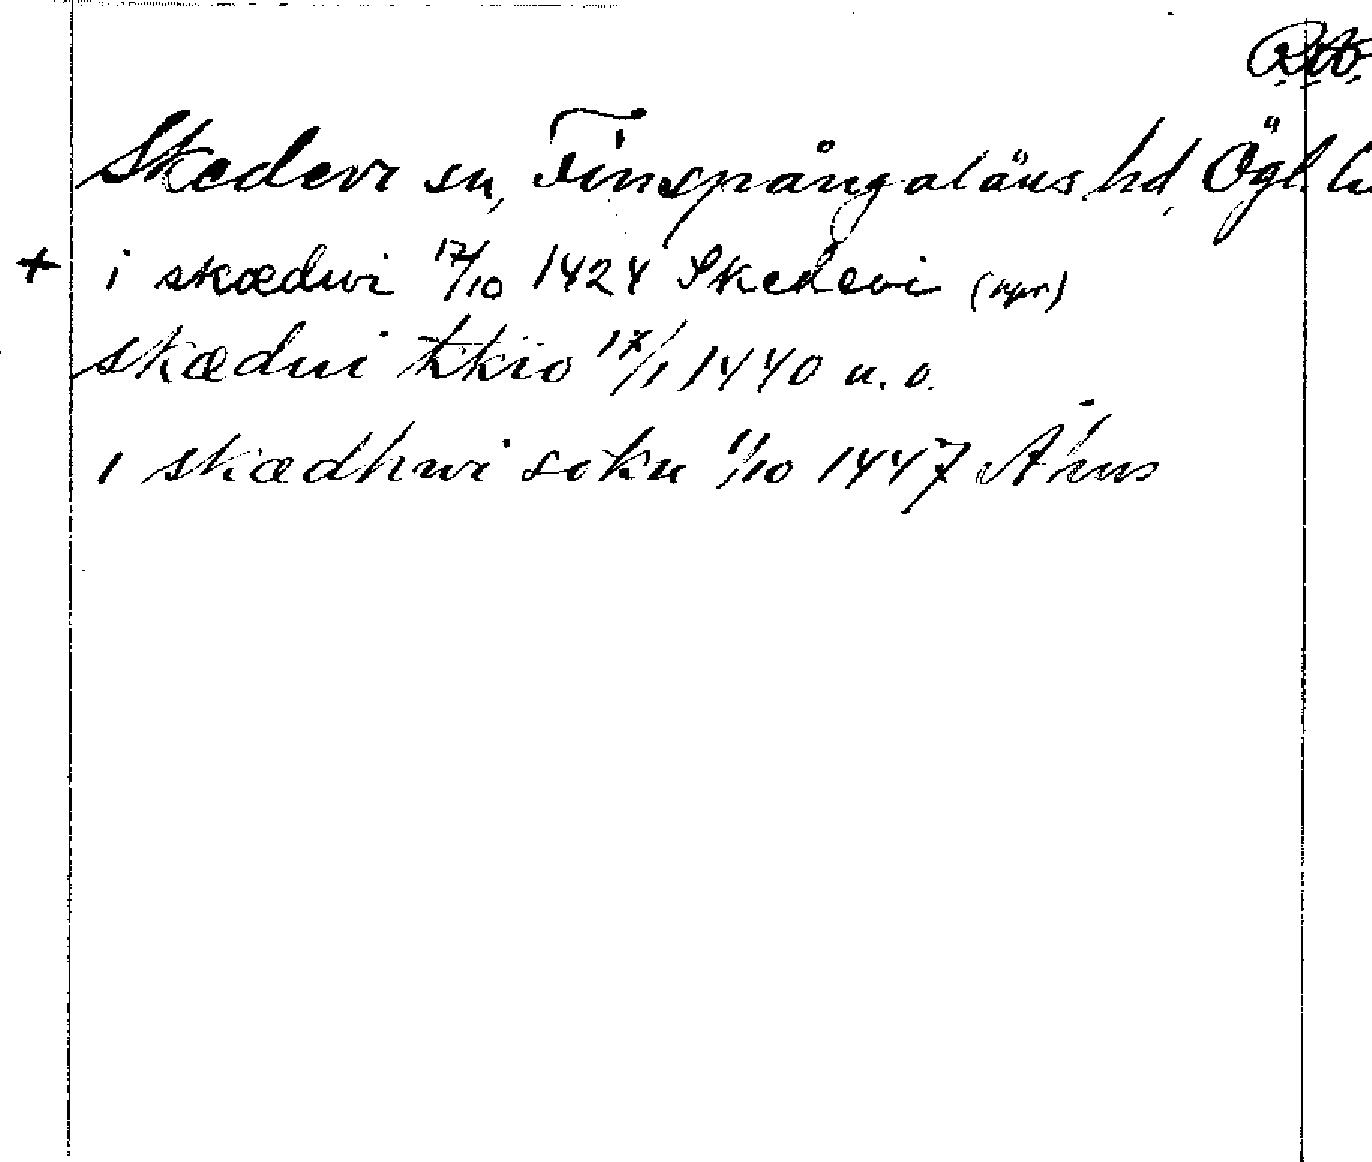 Skedevi sn, Finspångaläns hd, Ögl. l
+ i skædwi 17/10 1424 Skedevi (npr)
skædwi kkio 17/1 1440 u. o.
i skædhwi sokn 11/10 1447 Åhus